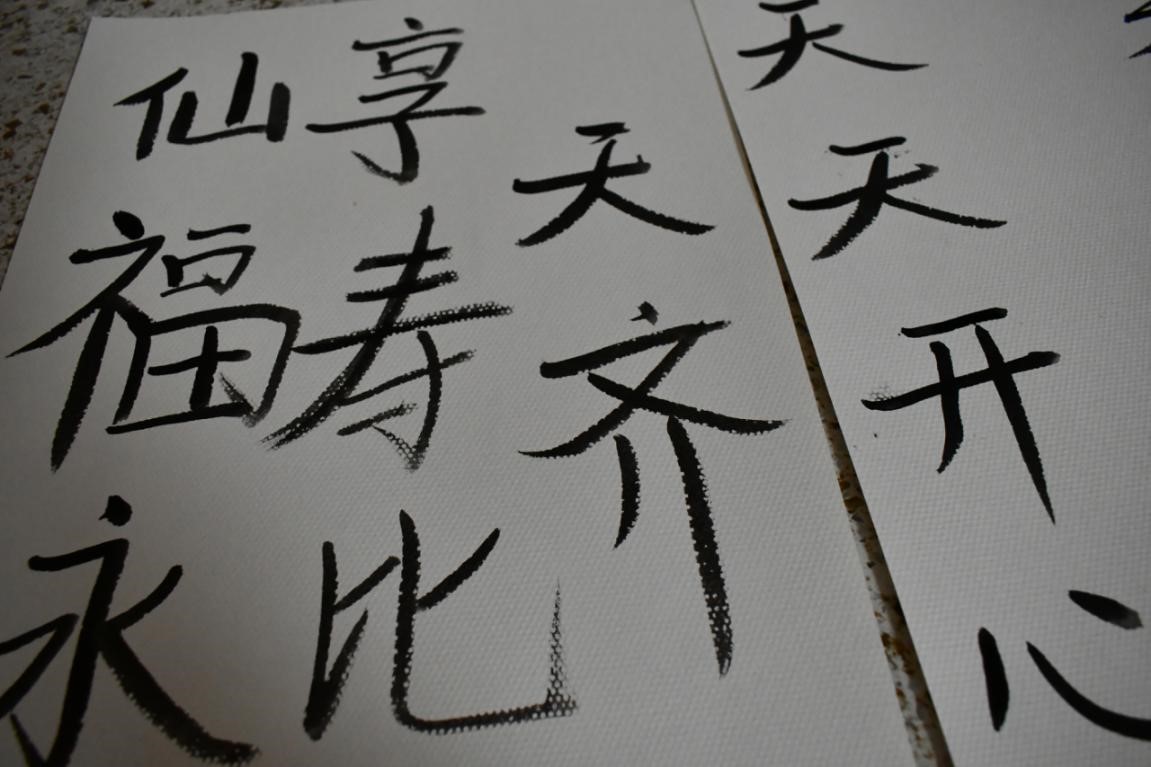 仙福永
享寿比
天齐
天天开心